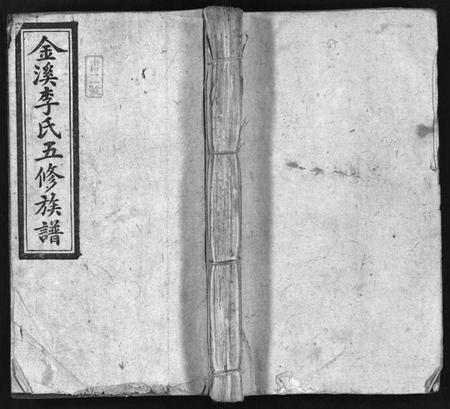 金溪李氏五修族譜